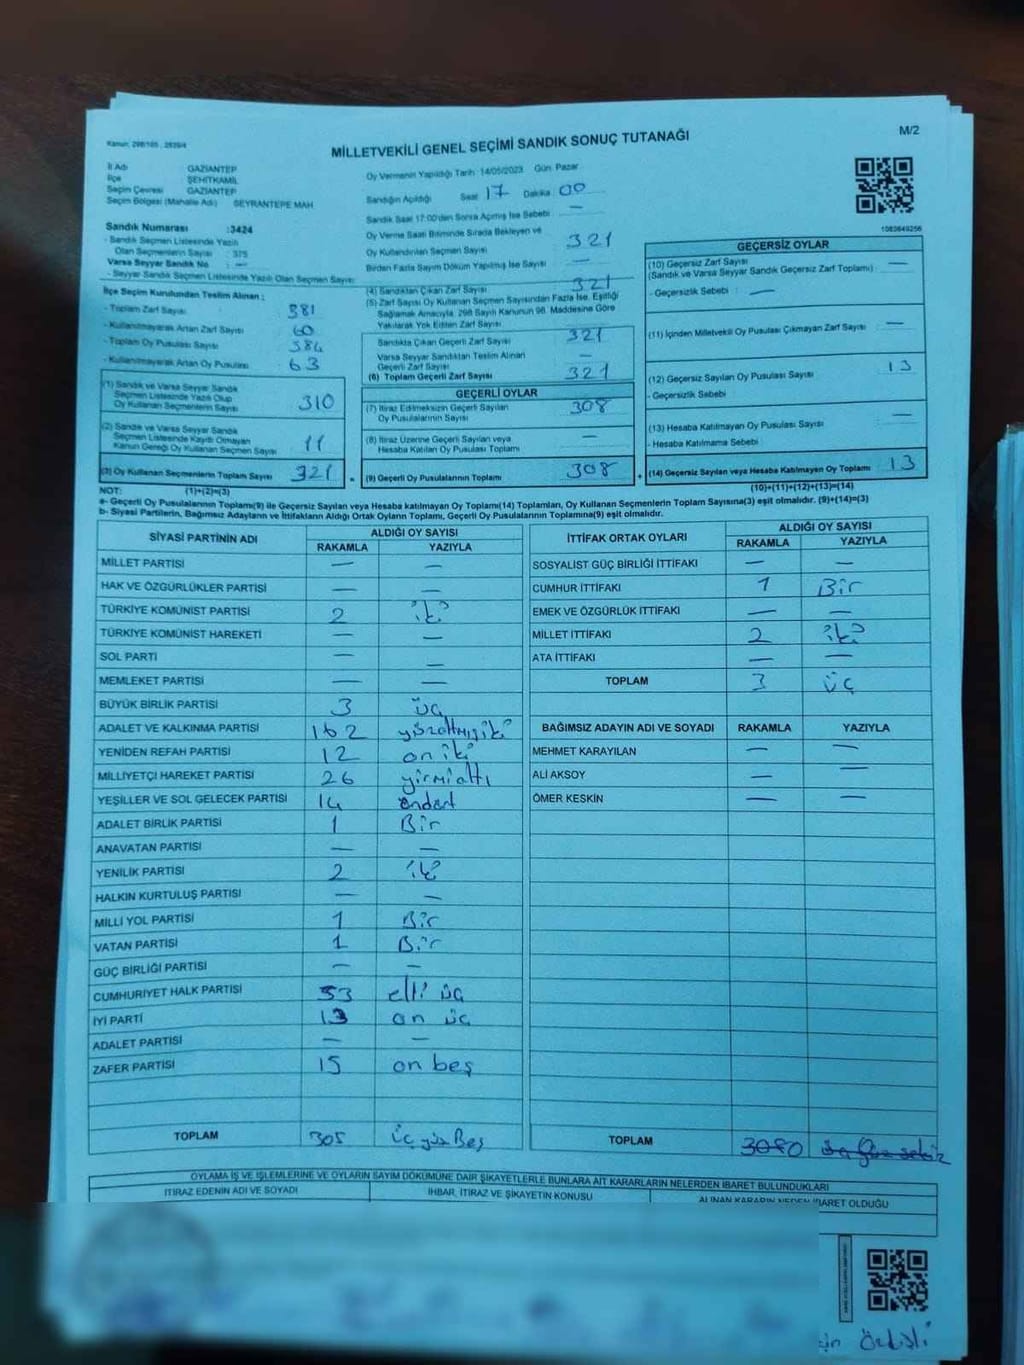 Kanun: 298/105 , 2839/4
MİLLETVEKİLİ GENEL SEÇİMİ SANDIK SONUÇ TUTANAĞI
M/2
İl Adı GAZİANTEP
İlçe ŞEHİTKAMİL
Seçim Çevresi GAZİANTEP
Seçim Bölgesi (Mahalle Adı) SEYRANTEPE MAH
Sandık Numarası :3424
- Sandık Seçmen Listesinde Yazılı
Olan Seçmenlerin Sayısı : 375
Varsa Seyyar Sandık No : —
- Seyyar Sandık Seçmen Listesinde Yazılı Olan Seçmen Sayısı:
İlçe Seçim Kurulundan Teslim Alınan ;
- Toplam Zarf Sayısı 381
- Kullanılmayarak Artan Zarf Sayısı 60
- Toplam Oy Pusulası Sayısı 384
- Kullanılmayarak Artan Oy Pusulası 63
(1) Sandık ve Varsa Seyyar Sandık
Seçmen Listesinde Yazılı Olup
Oy Kullanan Seçmenlerin Sayısı 310
(2) Sandık ve Varsa Seyyar Sandık
Seçmen Listesinde Kayıtlı Olmayan
Kanun Gereği Oy Kullanan Seçmen Sayısı 11
(3) Oy Kullanan Seçmenlerin Toplam Sayısı 321
Oy Vermenin Yapıldığı Tarih: 14/05/2023 Gün: Pazar
Sandığın Açıldığı Saat 17 Dakika 00
Sandık Saat 17:00'den Sonra Açılmış İse Sebebi —
Oy Verme Saati Bitiminde Sırada Bekleyen ve
Oy Kullandırılan Seçmen Sayısı 321
Birden Fazla Sayım Döküm Yapılmış İse Sayısı —
(4) Sandıktan Çıkan Zarf Sayısı 321
(5) Zarf Sayısı Oy Kullanan Seçmen Sayısından Fazla İse, Eşitliği
Sağlamak Amacıyla, 298 Sayılı Kanunun 98. Maddesine Göre
Yakılarak Yok Edilen Zarf Sayısı
Sandıkta Çıkan Geçerli Zarf Sayısı 321
Varsa Seyyar Sandıktan Teslim Alınan
Geçerli Zarf Sayısı —
(6) Toplam Geçerli Zarf Sayısı 321
GEÇERLİ OYLAR
(7) İtiraz Edilmeksizin Geçerli Sayılan
Oy Pusulalarının Sayısı 308
(8) İtiraz Üzerine Geçerli Sayılan veya
Hesaba Katılan Oy Pusulası Toplamı —
(9) Geçerli Oy Pusulalarının Toplamı 308
1083649256
GEÇERSİZ OYLAR
(10) Geçersiz Zarf Sayısı
(Sandık ve Varsa Seyyar Sandık Geçersiz Zarf Toplamı) —
- Geçersizlik Sebebi : —
(11) İçinden Milletvekili Oy Pusulası Çıkmayan Zarf Sayısı —
(12) Geçersiz Sayılan Oy Pusulası Sayısı 13
- Geçersizlik Sebebi
(13) Hesaba Katılmayan Oy Pusulası Sayısı —
- Hesaba Katılmama Sebebi
(14) Geçersiz Sayılan veya Hesaba Katılmayan Oy Toplamı 13
NOT: (1)+(2)=(3) (10)+(11)+(12)+(13)=(14)
a- Geçerli Oy Pusulalarının Toplamı(9) ile Geçersiz Sayılan veya Hesaba katılmayan Oy Toplamı(14) Toplamları, Oy Kullanan Seçmenlerin Toplam Sayısına(3) eşit olmalıdır. (9)+(14)=(3)
b- Siyasi Partilerin, Bağımsız Adayların ve İttifakların Aldığı Ortak Oyların Toplamı, Geçerli Oy Pusulalarının Toplamına(9) eşit olmalıdır.
SİYASİ PARTİNİN ADI ALDIĞI OY SAYISI
RAKAMLA YAZIYLA
MİLLET PARTİSİ — —
HAK VE ÖZGÜRLÜKLER PARTİSİ — —
TÜRKİYE KOMÜNİST PARTİSİ 2 iki
TÜRKİYE KOMÜNİST HAREKETİ — —
SOL PARTİ — —
MEMLEKET PARTİSİ — —
BÜYÜK BİRLİK PARTİSİ 3 üç
ADALET VE KALKINMA PARTİSİ 162 yüzaltmışiki
YENİDEN REFAH PARTİSİ 12 on iki
MİLLİYETÇİ HAREKET PARTİSİ 26 yirmialtı
YEŞİLLER VE SOL GELECEK PARTİSİ 14 ondört
ADALET BİRLİK PARTİSİ 1 Bir
ANAVATAN PARTİSİ — —
YENİLİK PARTİSİ 2 iki
HALKIN KURTULUŞ PARTİSİ — —
MİLLİ YOL PARTİSİ 1 Bir
VATAN PARTİSİ 1 Bir
GÜÇ BİRLİĞİ PARTİSİ — —
CUMHURİYET HALK PARTİSİ 53 elli üç
İYİ PARTİ 13 on üç
ADALET PARTİSİ — —
ZAFER PARTİSİ 15 on beş
TOPLAM 305 üç yüz Beş
İTTİFAK ORTAK OYLARI ALDIĞI OY SAYISI
RAKAMLA YAZIYLA
SOSYALİST GÜÇ BİRLİĞİ İTTİFAKI — —
CUMHUR İTTİFAKI 1 Bir
EMEK VE ÖZGÜRLÜK İTTİFAKI — —
MİLLET İTTİFAKI 2 iki
ATA İTTİFAKI — —
TOPLAM 3 üç
BAĞIMSIZ ADAYIN ADI VE SOYADI RAKAMLA YAZIYLA
MEHMET KARAYILAN — —
ALİ AKSOY — —
ÖMER KESKİN — —
TOPLAM 3080 üç yüz sekiz
OYLAMA İŞ VE İŞLEMLERİNE VE OYLARIN SAYIM DÖKÜMÜNE DAİR ŞİKAYETLERLE BUNLARA AİT KARARLARIN NELERDEN İBARET BULUNDUKLARI
İTİRAZ EDENİN ADI VE SOYADI İHBAR, İTİRAZ VE ŞİKAYETİN KONUSU ALINAN KARARIN NEDEN İBARET OLDUĞU